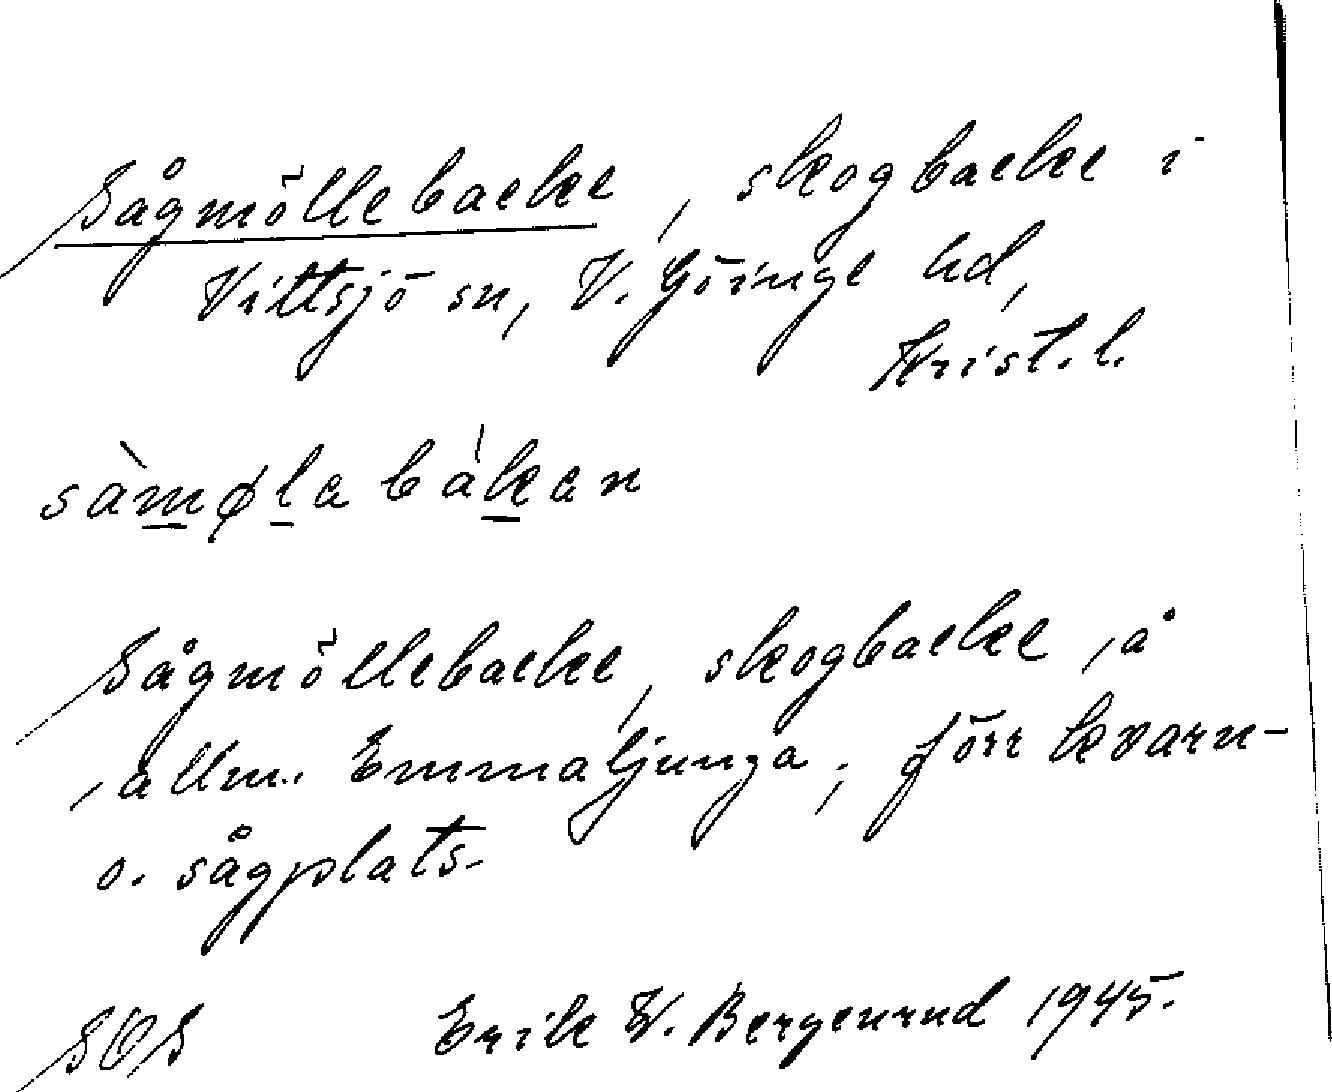 Sågmöllebacke, skogbacke i
Vittsjö sn, V. Göinge hd,
Krist. l.
sàmøla bákan
Sågmöllebacke, skogbacke, å
, allm. Emmaljunga; förr kvarn-
o. sågplats.
SOS Erik W. Bergenrud 1945.